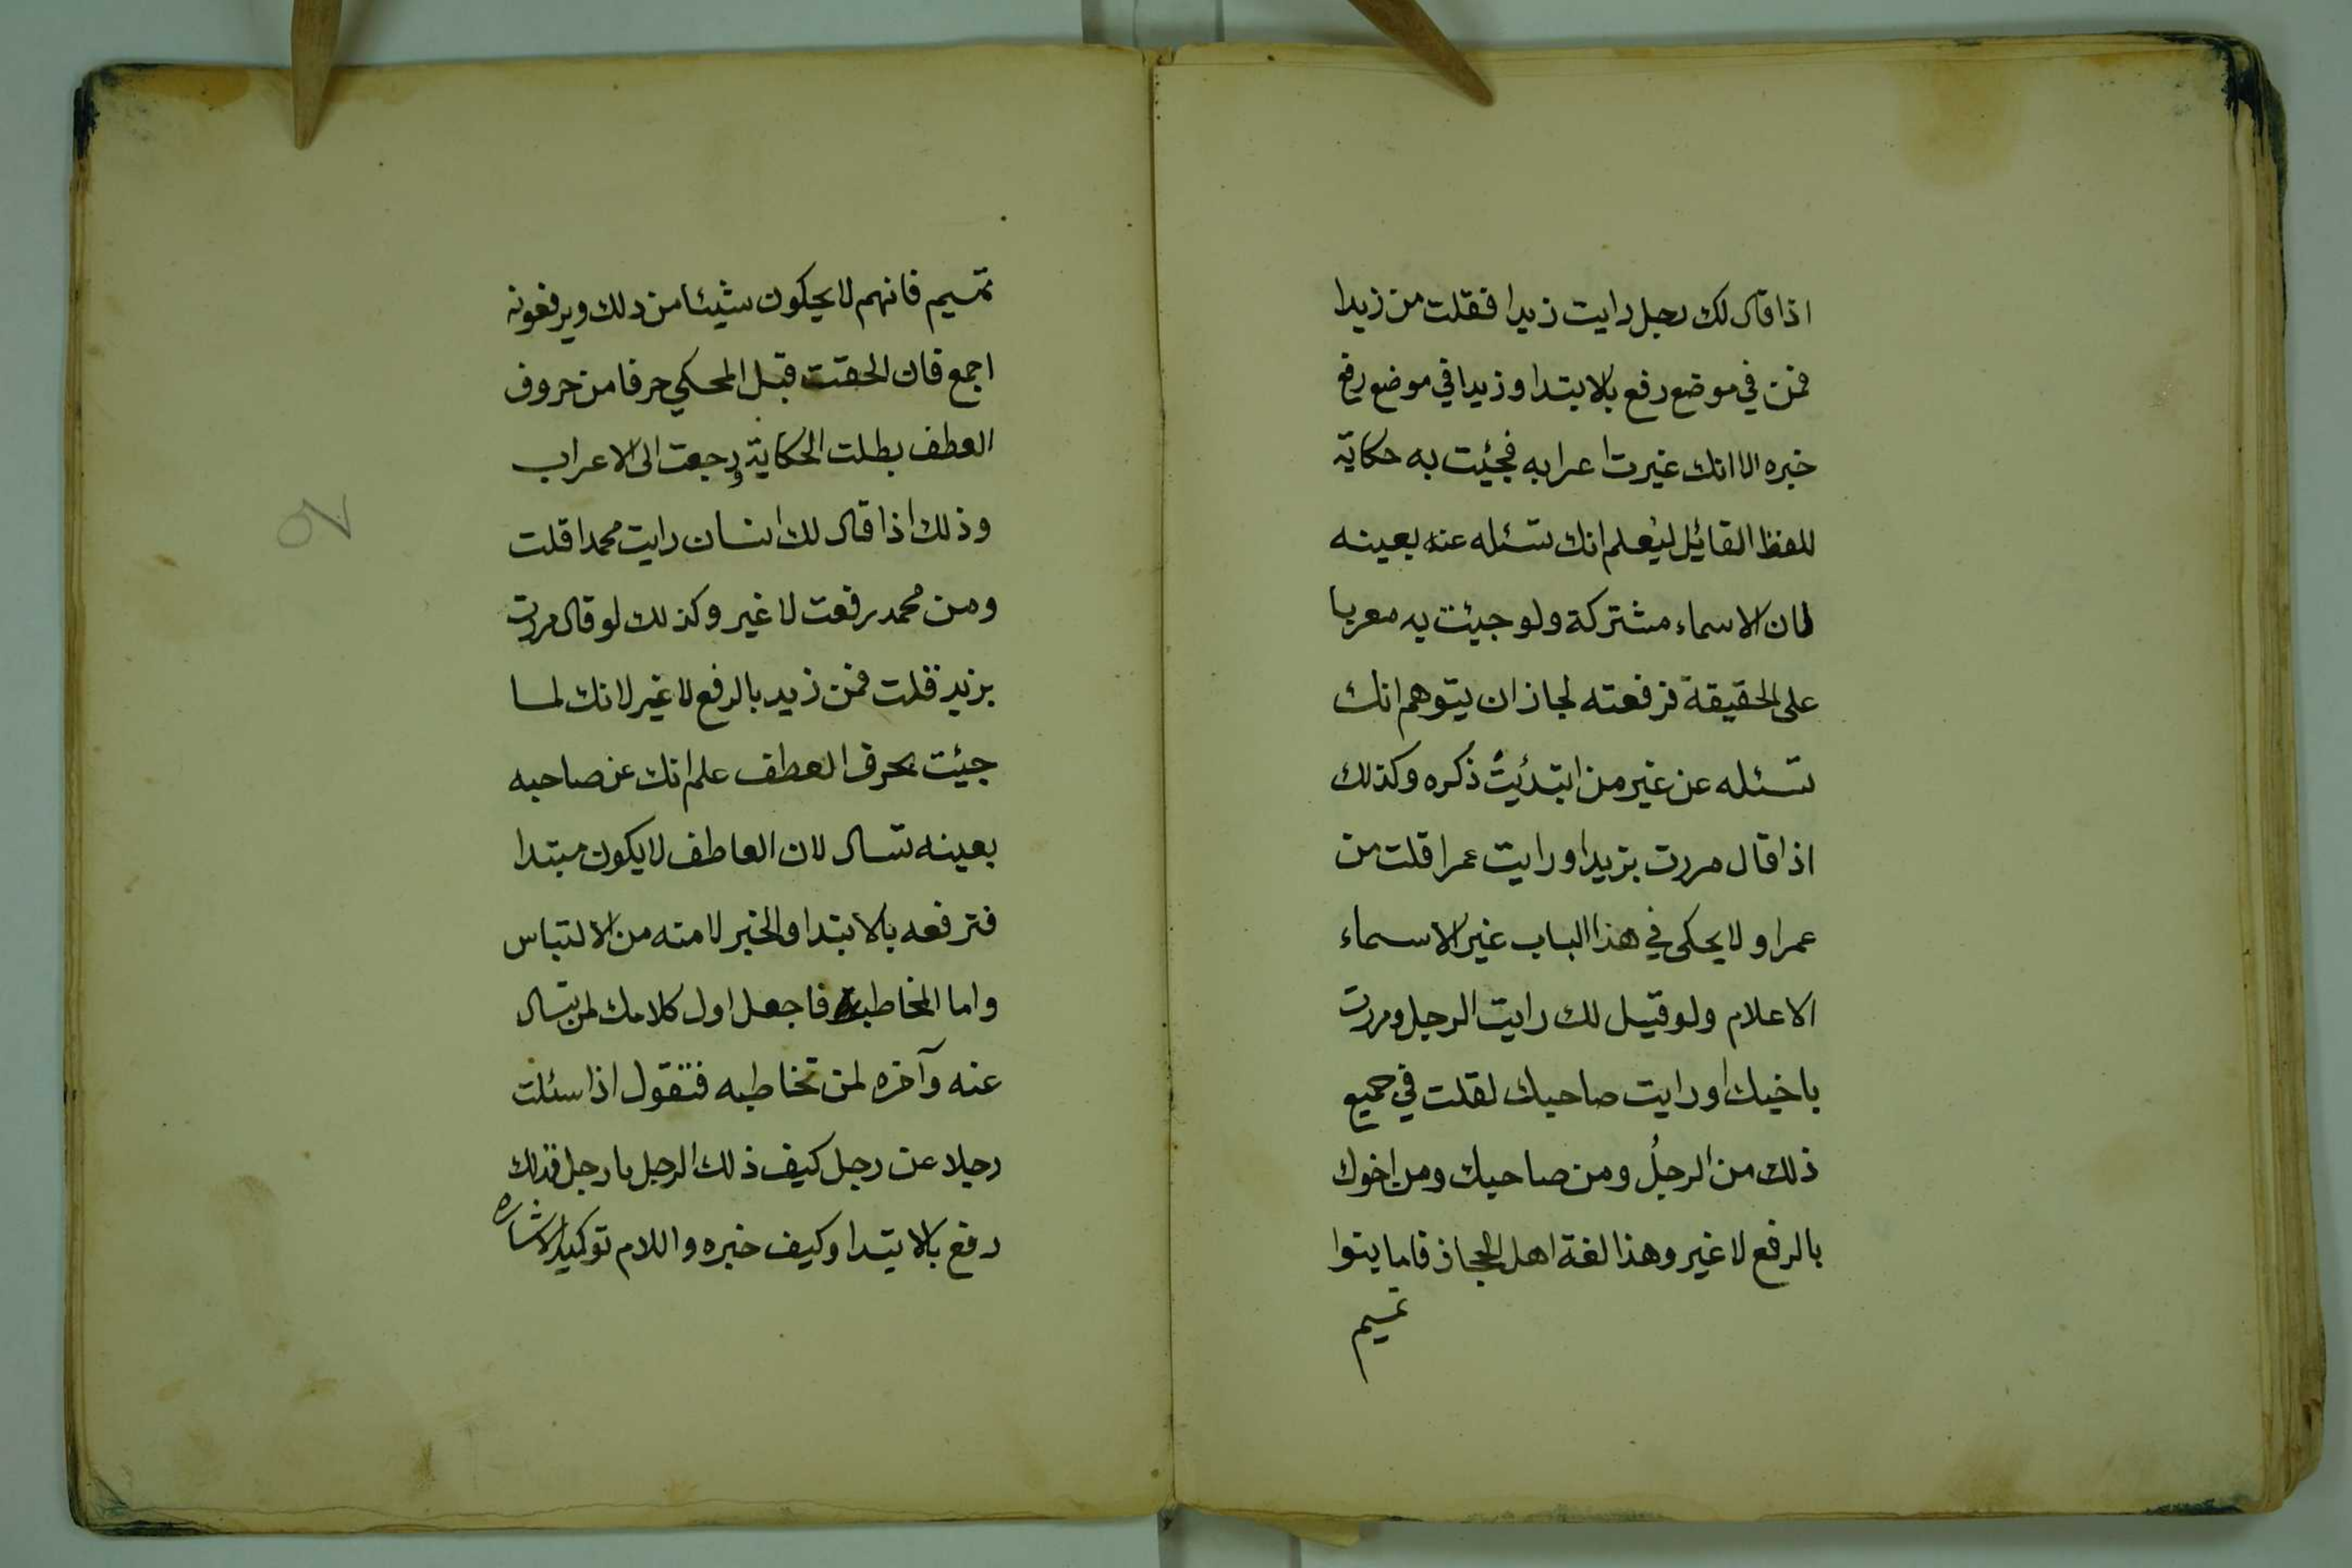 اذا قال لك رجل رايت زيدا فقلت من زيدا
فمن في موضع رفع بالابتدا وزيدا في موضع رفع
خبره الا انك غيرت اعرابه فجئيت به حكاية
للفظ القائيل ليُعلم انك تسئله عنه بعينه
لان الاسماء مشتركة ولو جيئت به معربا
على الحقيقة فرفعته لجاز ان يتوهم انك
تسئله عن غير من ابتدئيتُ ذكره وكذلك
اذا قال مررت بزيدا ورايت عمرا قلت من
عمرا ولا يحكى في هذا الباب غير الاسماء
الاعلام ولو قيل لك رايت الرجل ومررت
باخيك او رايت صاحبك لقلت في جميع
ذلك من الرجلُ ومن صاحبك ومن اخوك
بالرفع لا غير وهذا لغة اهل الحجاز فاما بنوا
تميم
تميم فانهم لا يحكون شيئا من ذلك ويرفعونه
اجمع فان الحقت قبل المحكي حرفا من حروف
العطف بطلت الحكاية ورجعت الى الاعراب
وذلك اذا قال لك انسان رايت محمدا قلت
ومن محمد رفعت لا غير وكذلك لو قال مررت
بزيد قلت فمن زيد بالرفع لا غير لانك لما
جيئت بحرف العطف علم انك عن صاحبه
بعينه تسال لان العاطف لا يكون مبتدا
فترفعه بالابتدا والخبر لامنه من الالتباس
واما المخاطبة فاجعل اول كلامك لمن تسال
عنه وآخره لمن تخاطبه فتقول اذا سئلت
رجلا عن رجل كيف ذلك الرجل يا رجل فذلك
رفع بالابتدا وكيف خبره واللام توكيد الاشاره
٥٧